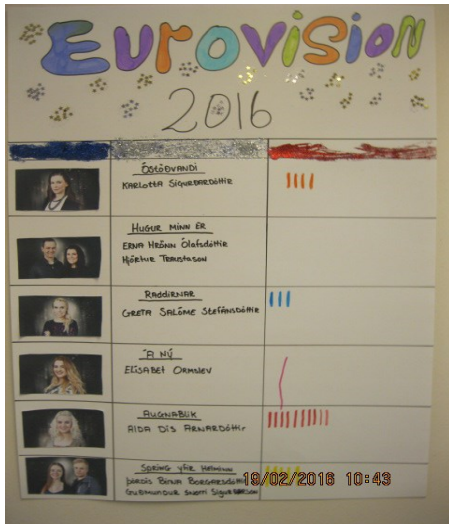 EUROVISION
2016
ÓSTÖÐVANDI
KARLOTTA SIGURÐARDÓTTIR
HUGUR MINN ER
ERNA HRÖNN ÓLAFSDÓTTIR
HJÖRTUR TRAUSTASON
RADDIRNAR
GRETA SALÓME STEFÁNSDÓTTIR
Á NÝ
ELÍSABET ORMSLEV
AUGNABLIK
ALDA DÍS ARNARDÓTTIR
SPRING YFIR HEIMINN
ÞÓRDÍS BIRNA BORGARSDÓTTIR
GUÐMUNDUR SNORRI
19/02/2016 10:43